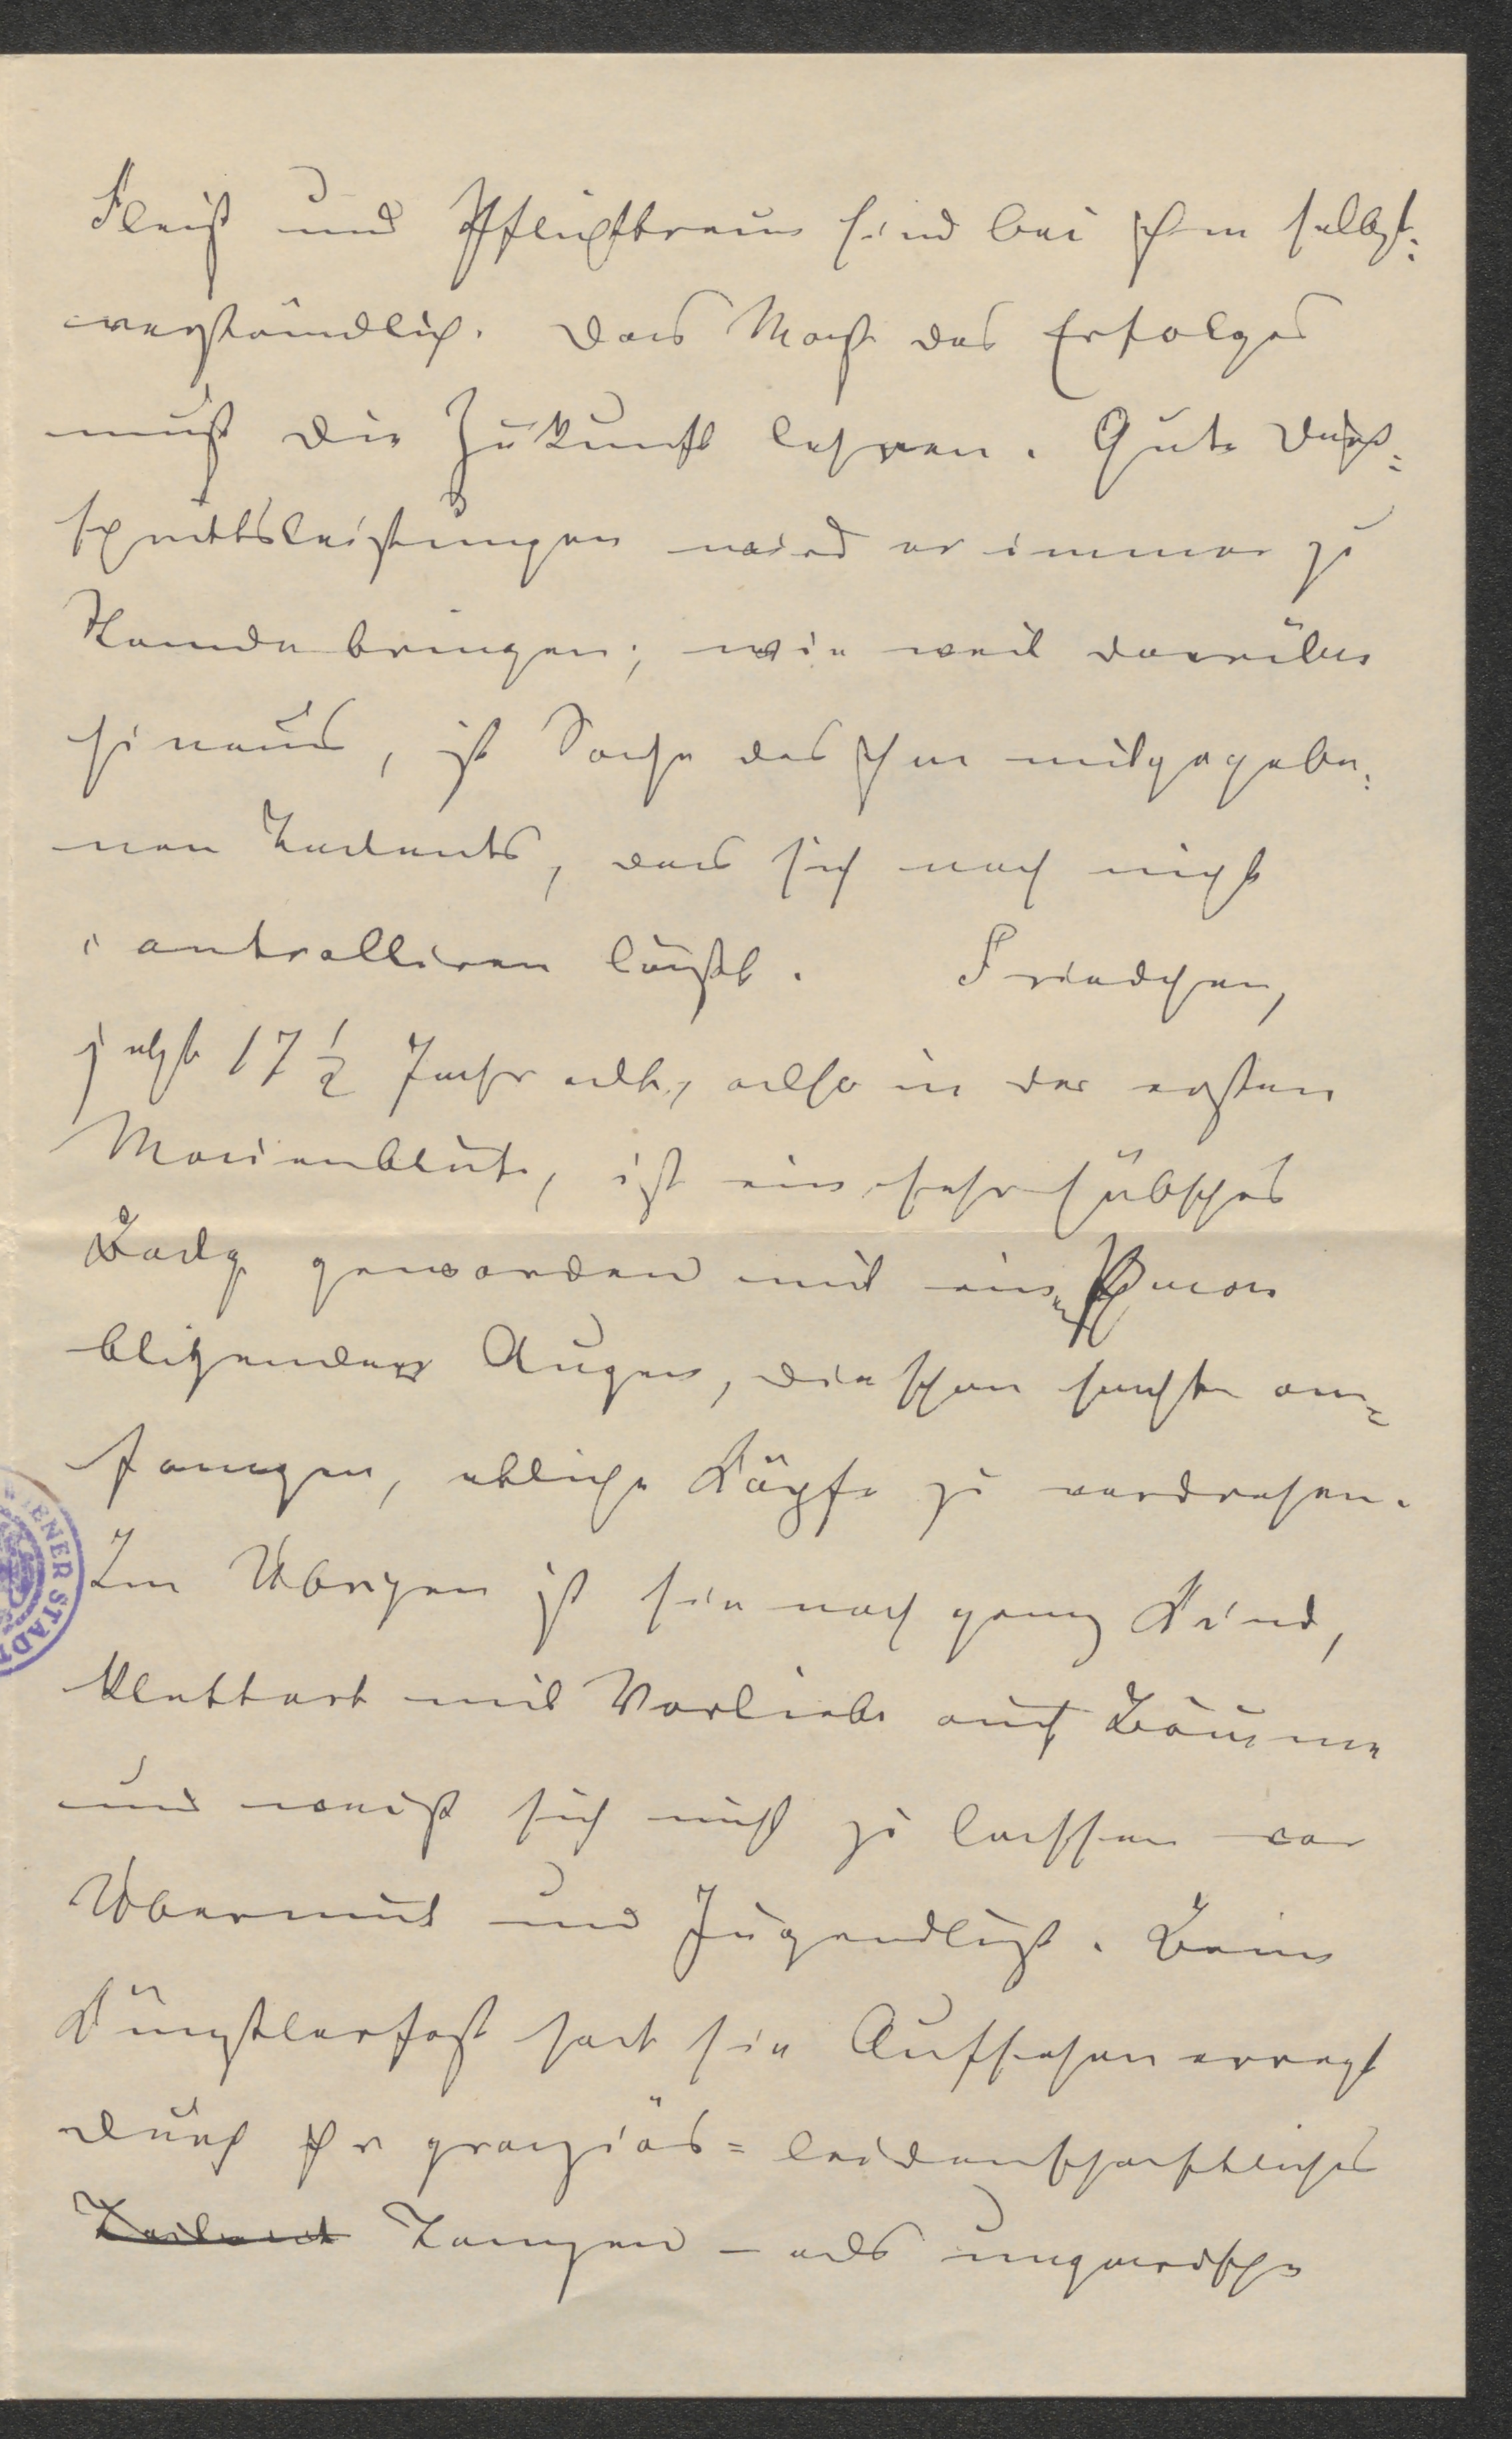 Fleiß und Pflichttreue sind bei ihm selbst=
verständlich. Das Maß des Erfolges
muß die Zukunft lehren. Gute Durch=
schnittsleistungen wird er immer zu
Stande bringen; wie weit darüber
hinaus, ist Sache des ihm mitgegebe=
nen Talents, das sich noch nicht
controlliren läßt. Friedchen,
jetzt 17 1/2 Jahr alt, also in der ersten
Maienblüte, ist ein sehr hübsches
Balg geworden mit ein Paar
blitzender Augen, die schon sachte an=
fangen, etliche Köpfe zu verdrehen.
Im Übrigen ist sie noch ganz Kind,
klettert mit Vorliebe auf Bäume
und weiß sich nicht zu lassen vor
Übermut und Jugendlust. Beim
Künstlerfest hat sie Aufsehen erregt
durch ihr graziös=leidenschaftliches
Talent Tanzen – als ungarische
ENER STADT